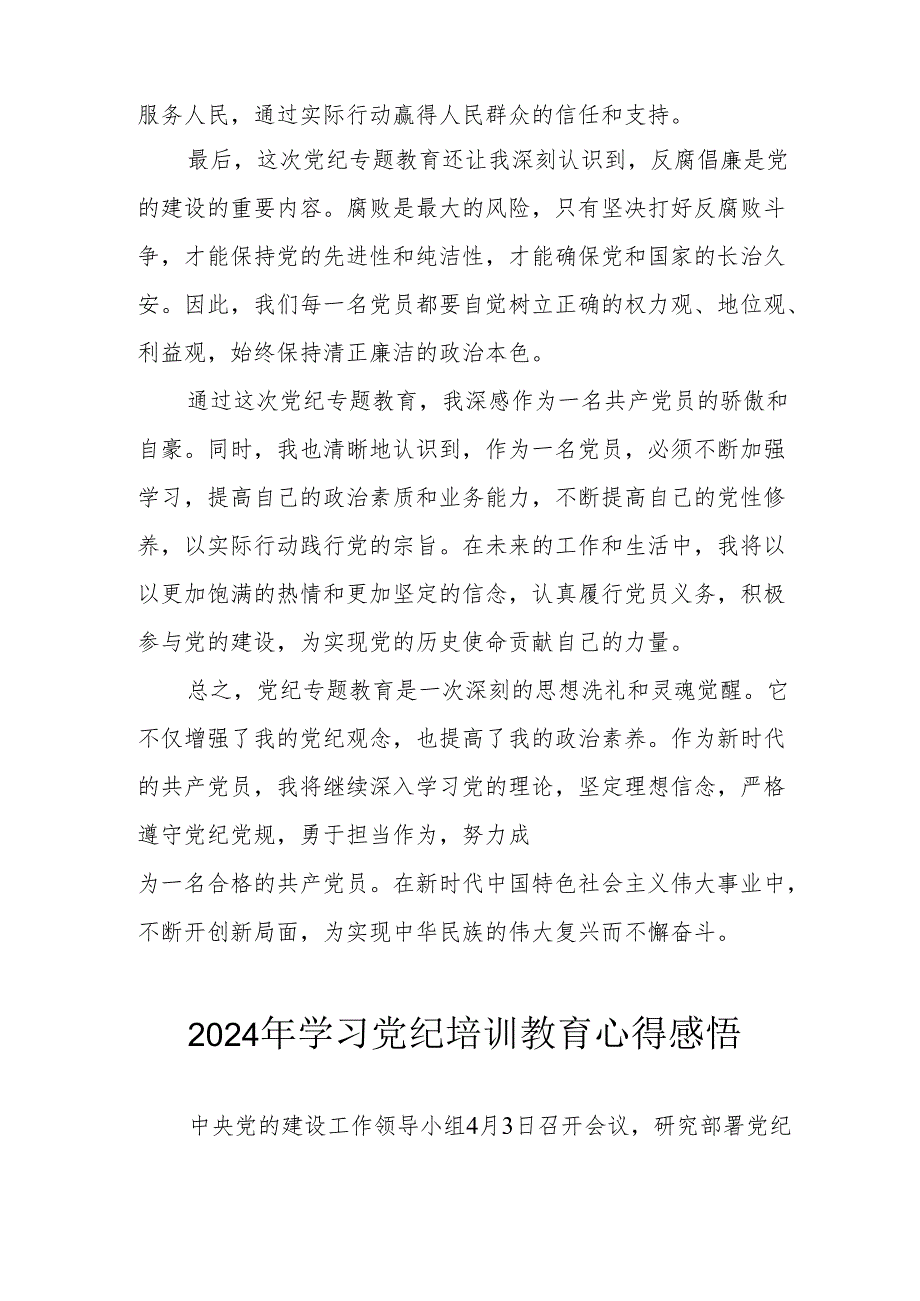 服务人民，通过实际行动赢得人民群众的信任和支持。
最后，这次党纪专题教育还让我深刻认识到，反腐倡廉是党
的建设的重要内容。腐败是最大的风险，只有坚决打好反腐败斗
争，才能保持党的先进性和纯洁性，才能确保党和国家的长治久
安。因此，我们每一名党员都要自觉树立正确的权力观、地位观、
利益观，始终保持清正廉洁的政治本色。
通过这次党纪专题教育，我深感作为一名共产党员的骄傲和
自豪。同时，我也清晰地认识到，作为一名党员，必须不断加强
学习，提高自己的政治素质和业务能力，不断提高自己的党性修
养，以实际行动践行党的宗旨。在未来的工作和生活中，我将以
以更加饱满的热情和更加坚定的信念，认真履行党员义务，积极
参与党的建设，为实现党的历史使命贡献自己的力量。
总之，党纪专题教育是一次深刻的思想洗礼和灵魂觉醒。它
不仅增强了我的党纪观念，也提高了我的政治素养。作为新时代
的共产党员，我将继续深入学习党的理论，坚定理想信念，严格
遵守党纪党规，勇于担当作为，努力成
为一名合格的共产党员。在新时代中国特色社会主义伟大事业中，
不断开创新局面，为实现中华民族的伟大复兴而不懈奋斗。
2024年学习党纪培训教育心得感悟
中央党的建设工作领导小组4月3日召开会议，研究部署党纪